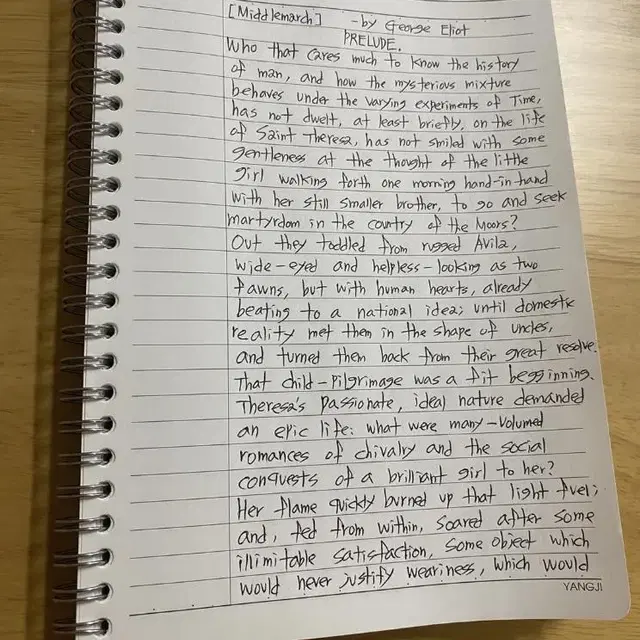 [Middlemarch] - by George Eliot
PRELUDE.
Who that cares much to know the history
of man, and how the mysterious mixture
behaves under the varying experiments of Time,
has not dwelt, at least briefly, on the life
of Saint Theresa, has not smiled with some
gentleness at the thought of the little
girl walking forth one morning hand-in-hand
with her still smaller brother, to go and seek
martyrdom in the country of the Moors?
Out they toddled from rugged Avila,
wide-eyed and helpless-looking as two
fawns, but with human hearts, already
beating to a national idea; until domestic
reality met them in the shape of uncles,
and turned them back from their great resolve.
That child-pilgrimage was a fit begginning.
Theresa's passionate, ideal nature demanded
an epic life: what were many-volumed
romances of chivalry and the social
conquests of a brilliant girl to her?
Her flame quickly burned up that light fuel;
and, fed from within, soared after some
illimitable satisfaction, some object which
would never justify weariness, which would
YANGJI